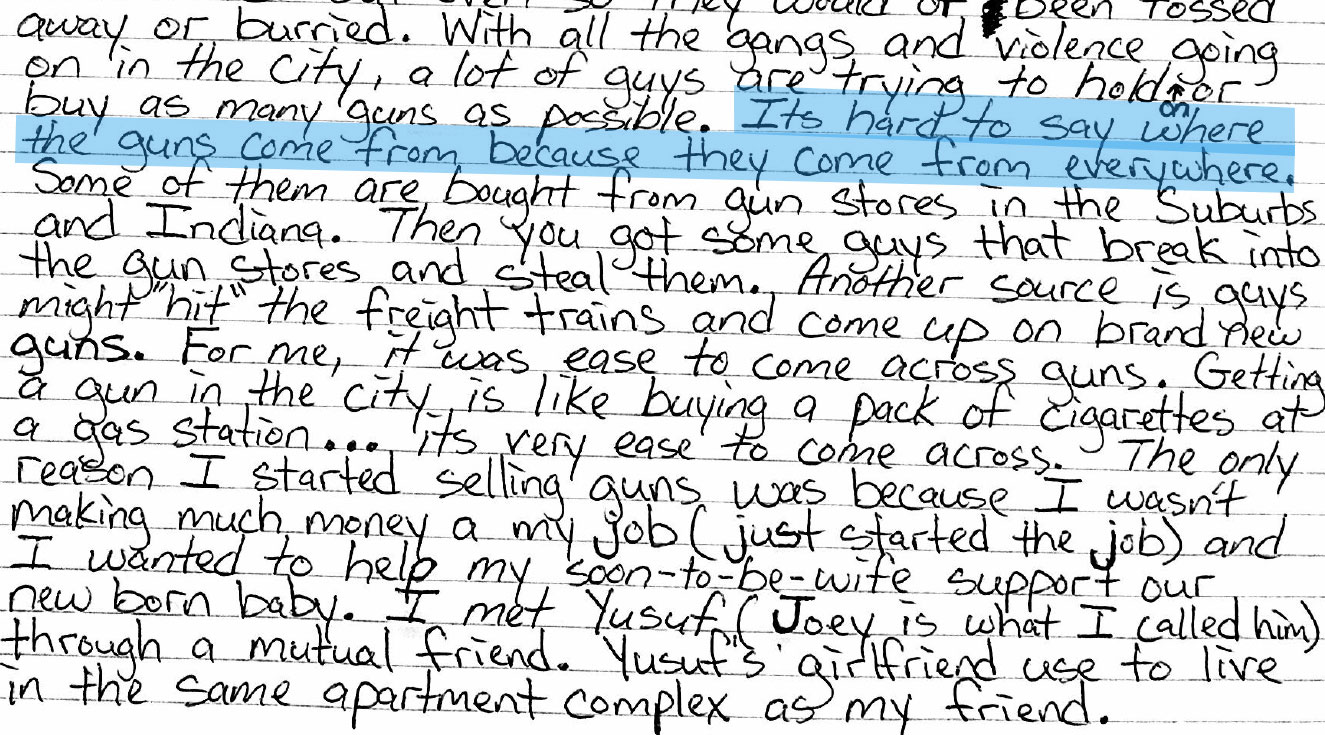 so they would of been tossed
away or burried. With all the gangs and violence going
on in the city, a lot of guys are trying to hold on or
buy as many guns as possible. Its hard to say where
the guns come from because they come from everywhere.
Some of them are bought from gun stores in the Suburbs
and Indiana. Then you got some guys that break into
the gun stores and steal them. Another source is guys
might "hit" the freight trains and come up on brand new
guns. For me, it was ease to come across guns. Getting
a gun in the city is like buying a pack of cigarettes at
a gas station... its very ease to come across. The only
reason I started selling guns was because I wasn't
making much money a my job (just started the job) and
I wanted to help my soon-to-be-wife support our
new born baby. I met Yusuf (Joey is what I called him)
through a mutual friend. Yusuf's girlfriend use to live
in the same apartment complex as my friend.